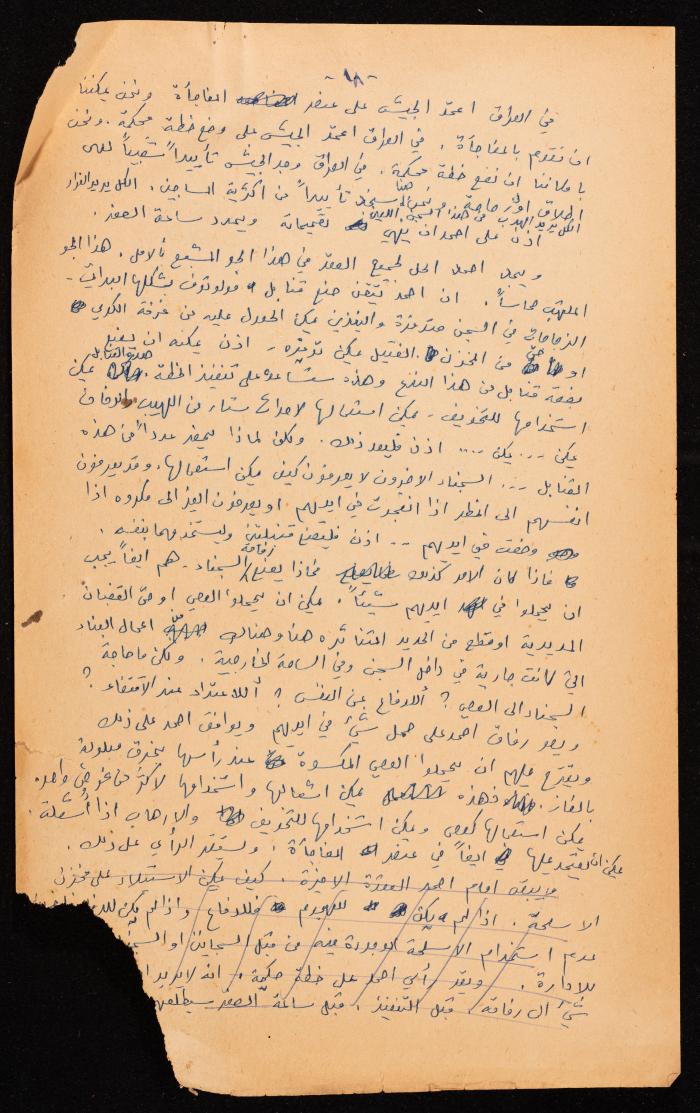 - ١٨ -
في العراق اعتمد الجيش على عنصر المفاجأة ونحن يمكننا
ان نقوم بالمفاجأة. في العراق اعتمد الجيش على وضع خطة محكمة. ونحن
بامكاننا ان نضع خطة محكمة. في العراق وجد الجيش تأييداً شعبياً لدى
اطلاق اول رصاصة. ونحن هنا سنجد تأييداً من اكثرية المساجين. الكل يريد الفرار
الكل يريد الهرب من هذا السجن
اذن على احمد ان ينهي تقييماته ويحدد ساعة الصفر.
ويجد احمد الحل لجميع العقد في هذا الجو المشبع بالامل. هذا الجو
الملتهب حماساً. ان احمد يتقن صنع قنابل مولوتوف بشكلها البدائي -
الزجاجات في السجن متوفرة والبنزين يمكن الحصول عليه من غرفة الكوي
او حتى من المخزن. الفتيل يمكن توفيره - اذن يمكنه ان يصنع
بضعة قنابل من هذا النوع وهذه ستساعد على تنفيذ الخطة. هذه القنابل يمكن
استخدامها للتخويف - يمكن استعمالها لاحداث ستار من اللهيب والدخان
يمكن ... يمكن .... اذن فليعد ذلك. ولكن لماذا يحضر عدداً من هذه
القنابل ... السجناء الاخرون لا يعرفون كيف يمكن استعمالها. وقد يعرضون
انفسهم الى الخطر اذا انفجرت في ايديهم او يعرضون الغير الى مكروه اذا
وضعت في ايديهم .. اذن فليصنع قنبلتين وليستخدمهما بنفسه.
فاذا كان الامر كذلك فماذا يصنع رفاقه السجناء - هم ايضاً يجب
ان يحملوا في ايديهم شيئاً. يمكن ان يحملوا العصي او حتى القضبان
الحديدية او قطع من الحديد المتناثره هنا وهناك اعمال البناء
التي كانت جارية في داخل السجن وفي الساحة الخارجية. ولكن ما حاجة
السجناء الى العصي؟ أللدفاع عن النفس؟ أللاعتداء عند الاقتضاء؟
ويصر رفاق احمد على حمل شيء في ايديهم ويوافق احمد على ذلك
ويقترح عليهم ان يحملوا العصي المكسوة عند رأسها بخرق مبلولة
بالغاز. فهذه يمكن اشعالها واستخدامها لاكثر من غرض واحد.
يمكن استعمالها كعصي ويمكن استخدامها للتخويف والارهاب اذا أُشعلت.
يمكن ان يعتمد عليها ايضاً في عنصر المفاجأة. ويستقر الرأي على ذلك.
ويبقى امام احمد العقدة الاخيرة. كيف يمكن الاستيلاء على مخزن
الاسلحة. اذا لم يكن للهجوم فللدفاع واذا لم يكن للدفاع
عدم استخدام الاسلحة الموجودة فيه من قبل السجانين او السجناء
للادارة. ويقر رأي احمد على خطة محكمة. انه لا يريد ا
شيء الى رفاقه قبل التنفيذ. قبل ساعة الصفر سيطلعهم